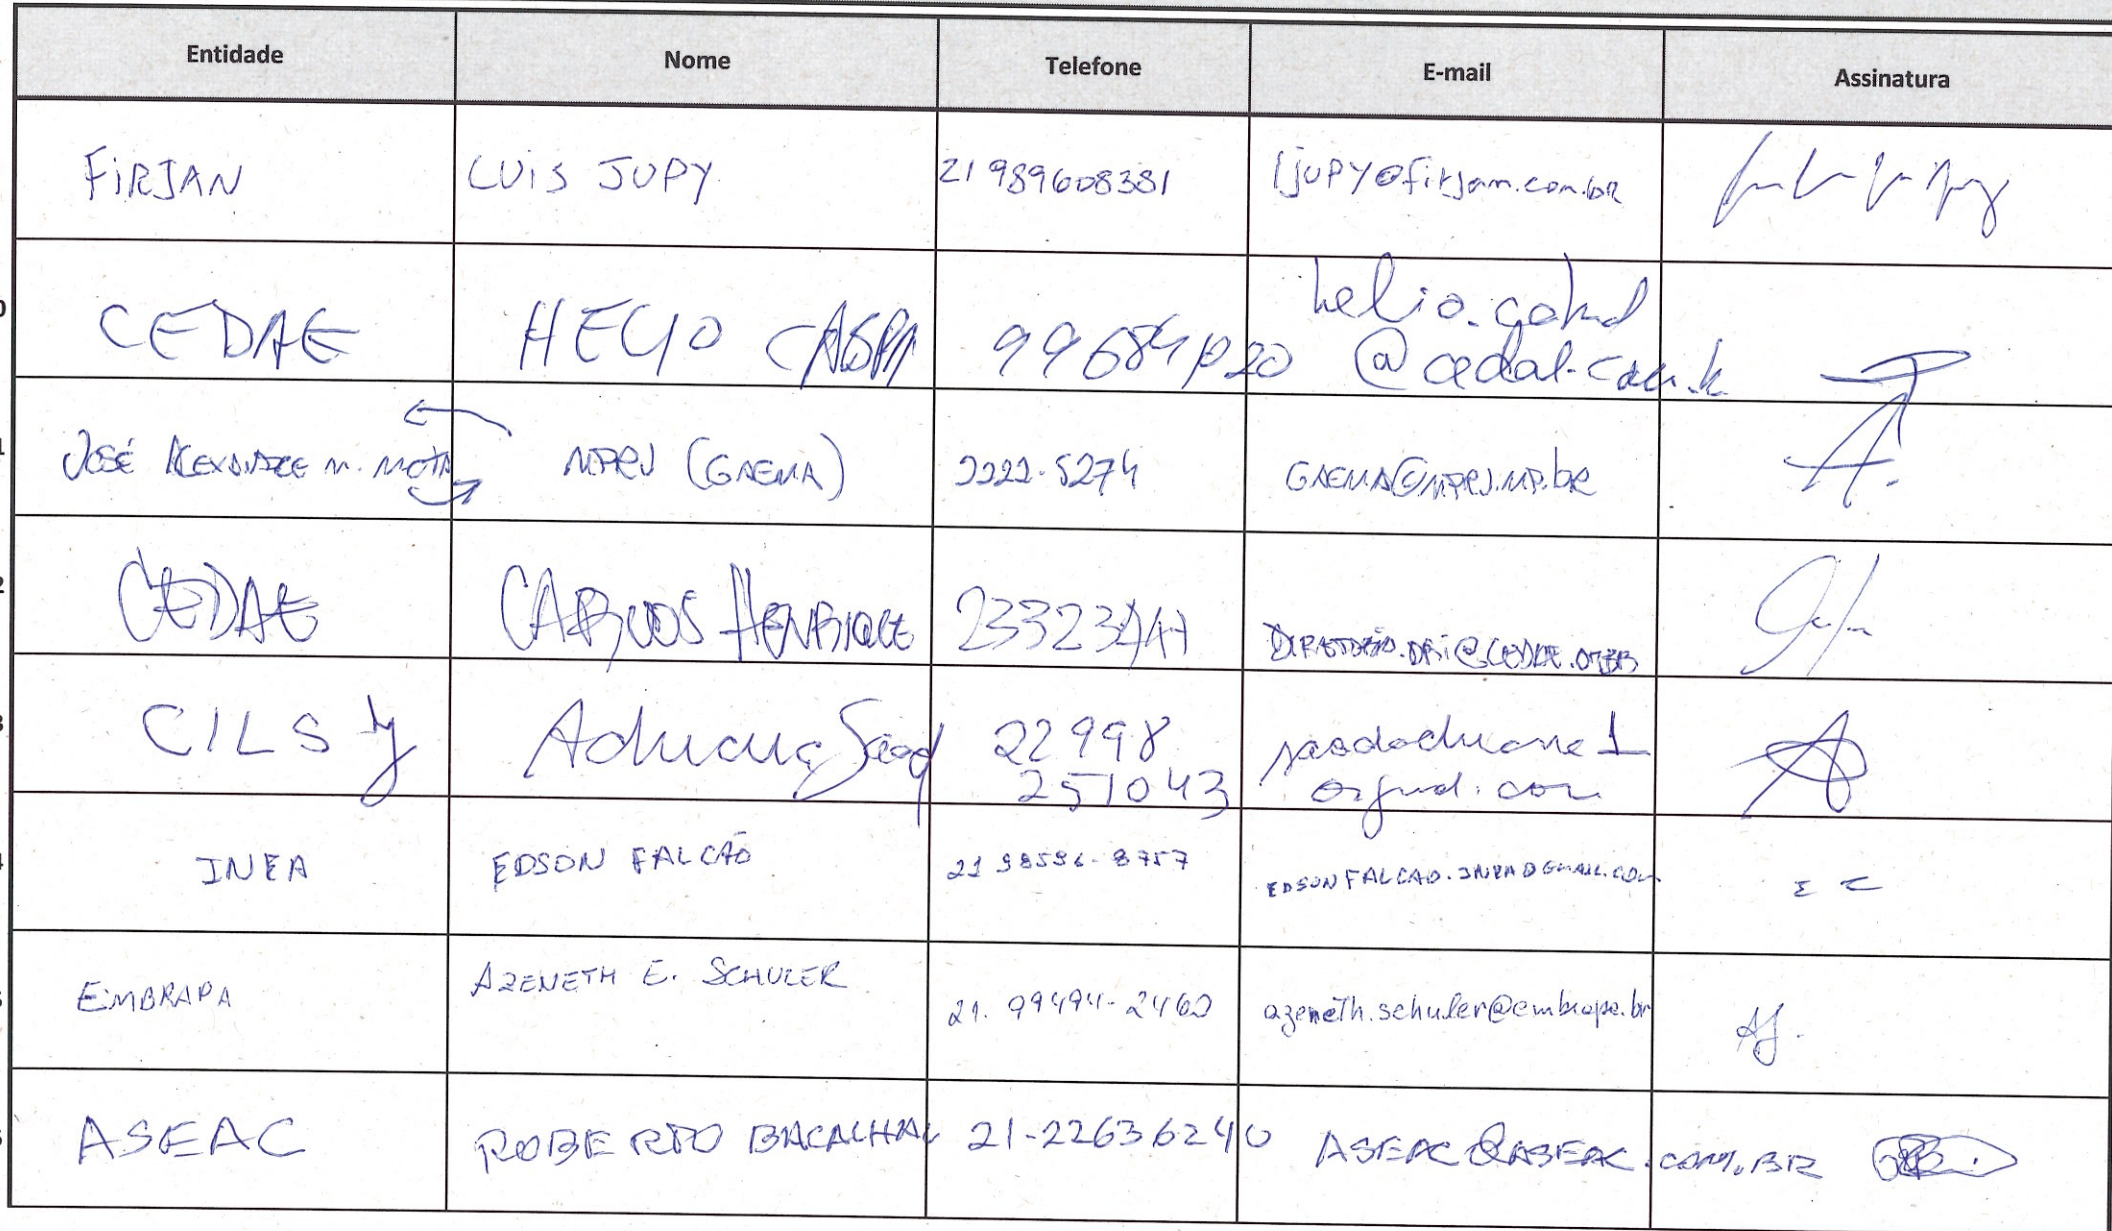 Entidade Nome Telefone E-mail Assinatura
FIRJAN LUIS JUPY 21 989608381 ljupy@firjan.com.br
CEDAE HELIO
helio.
JOSÉ ALEXANDRE M. MOTA MPRJ (GAEMA) 2222-5274 GAEMA@MPRJ.MP.br
CEDAE CARLOS HENRIQUE
CILSJ Adriana Saad 22 998
251043
INEA EDSON FALCÃO 21 98596-8757 EDSONFALCAO.INEA@GMAIL.COM
EMBRAPA AZENETH E. SCHULER 21. 99494-2460 azeneth.schuler@embrapa.br
ASEAC ROBERTO BACALHAU 21-22636240 ASEAC@ASEAC.COM.BR